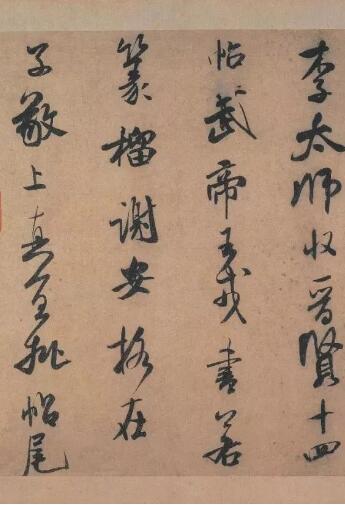 李太师收晋贤十四
帖武帝王戎书若
篆籀谢安格在
子敬上真宜批帖尾